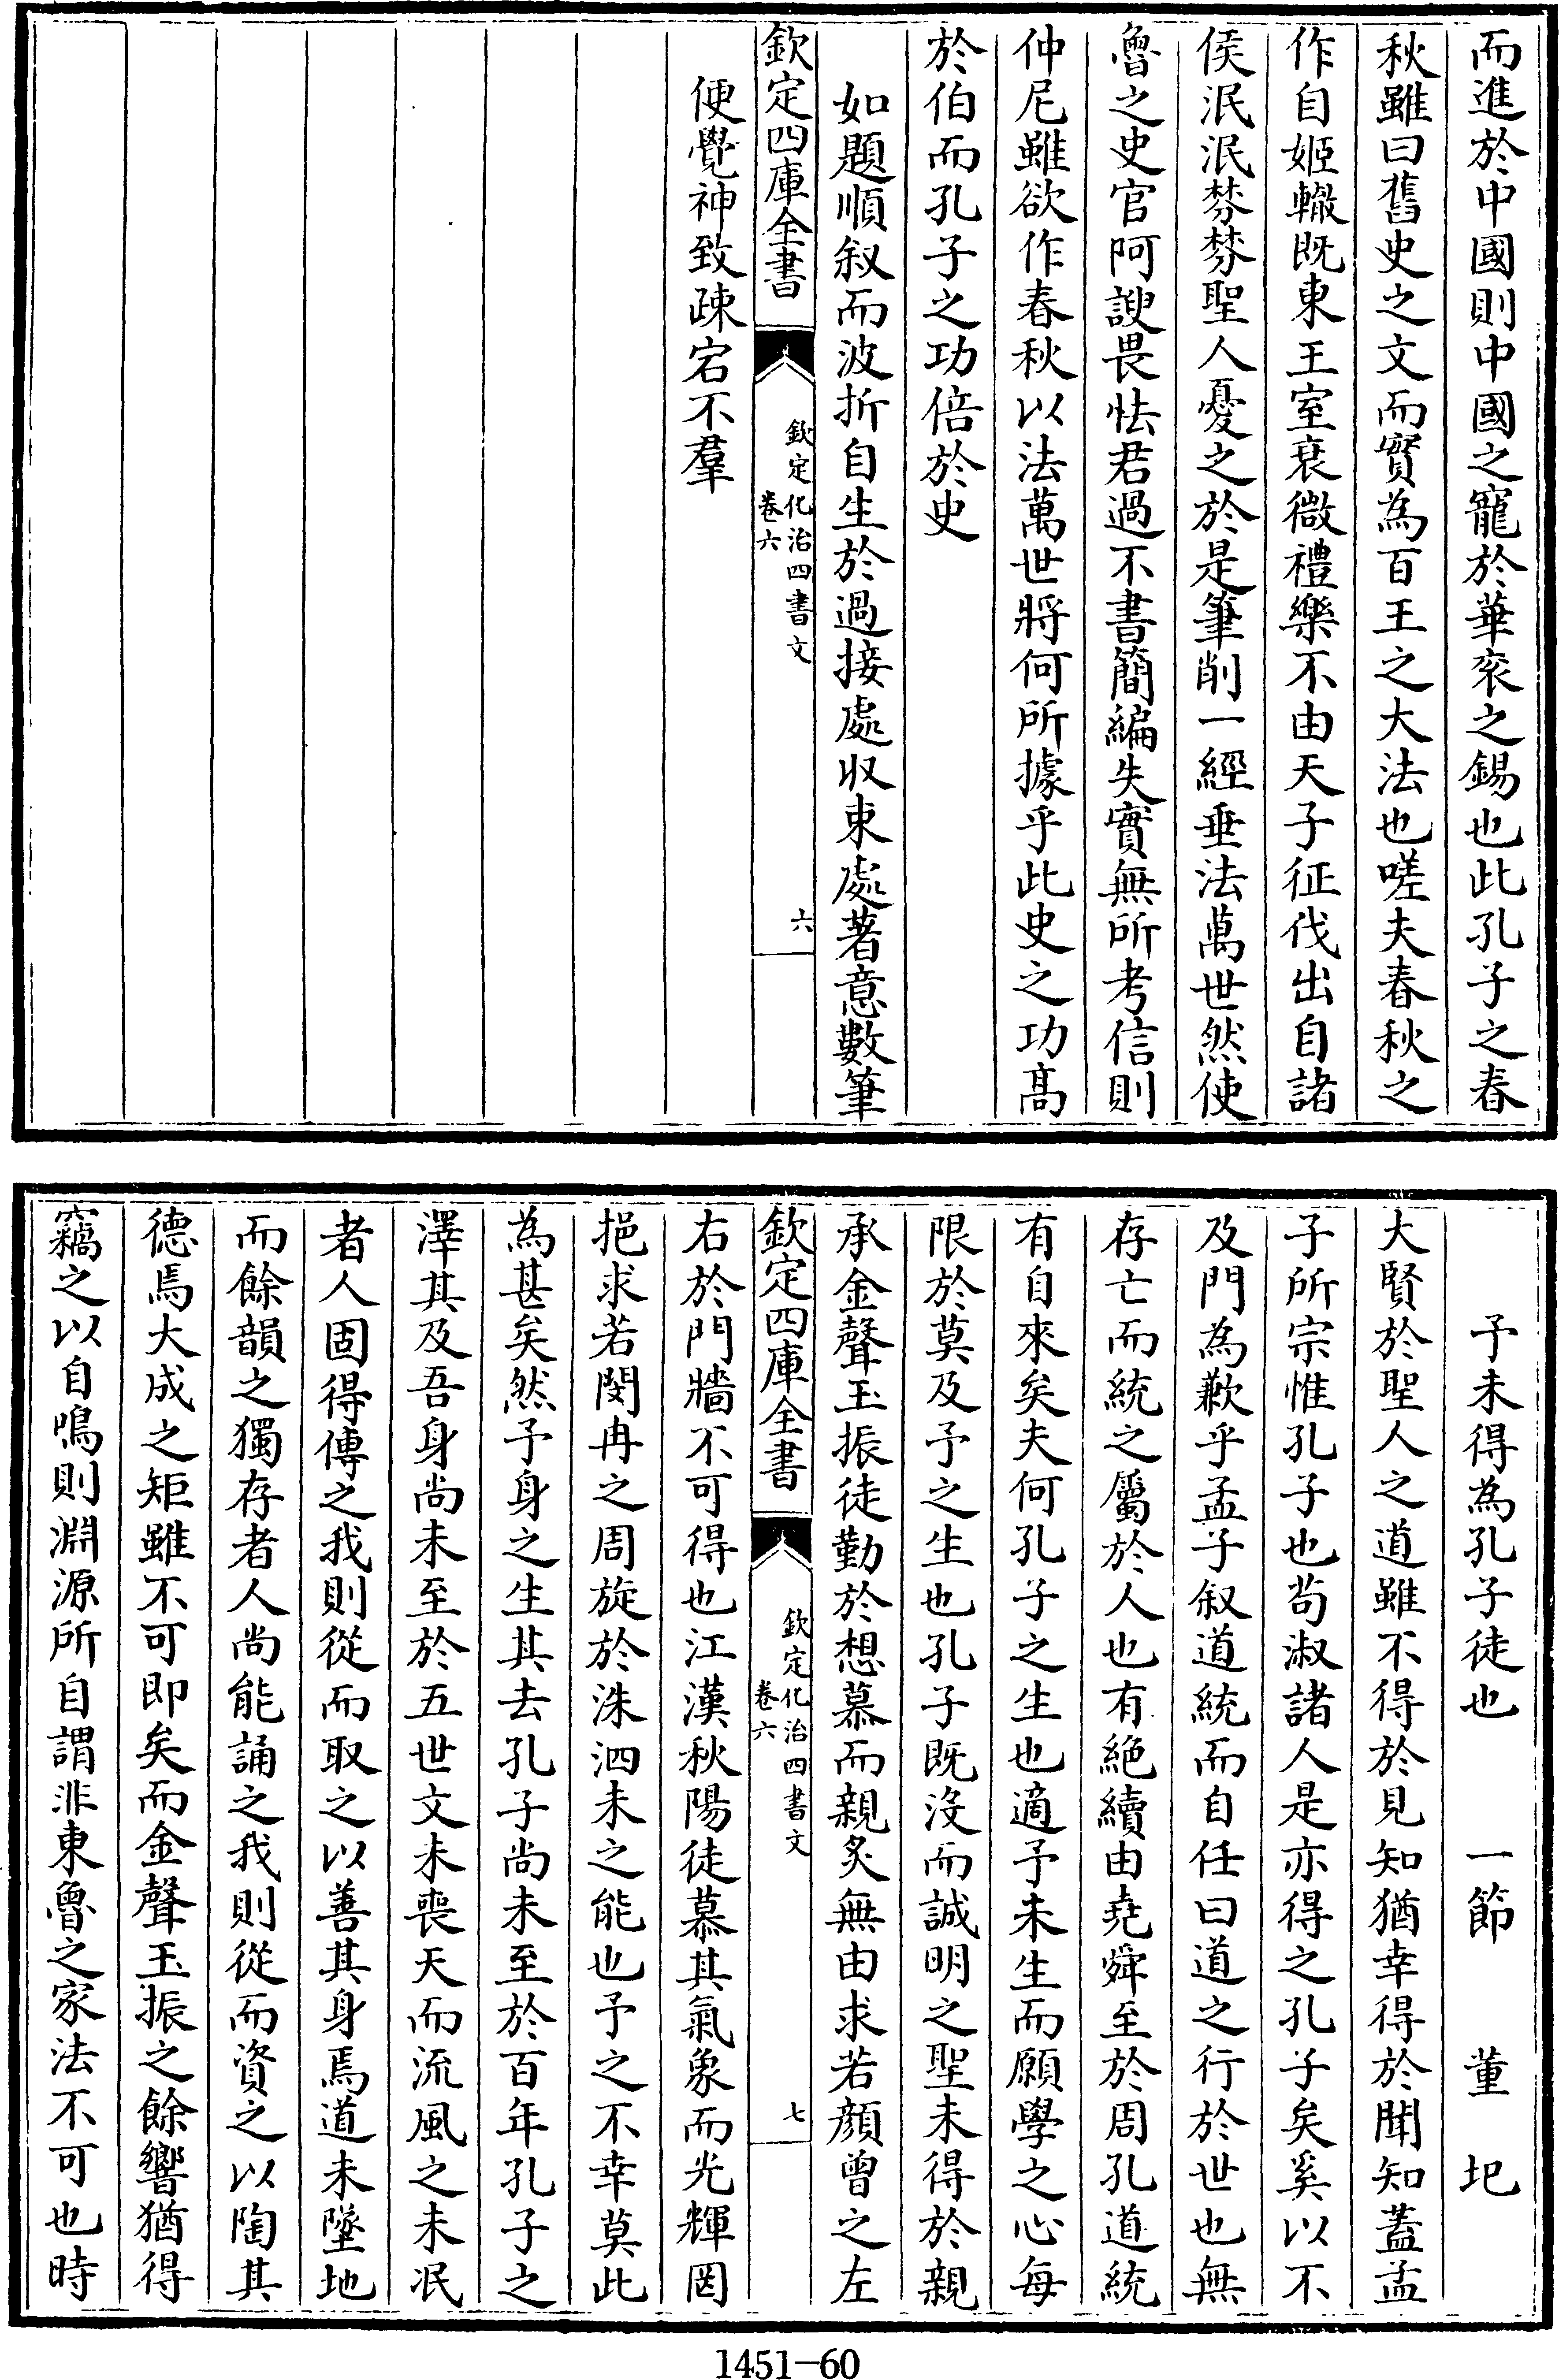 而進於中國則中國之寵於華衮之錫也此孔子之春
秋雖曰舊史之文而實為百王之大法也嗟夫春秋之
作自姬轍既東王室衰微禮樂不由天子征伐出自諸
侯泯泯棼棼聖人憂之於是筆削一經垂法萬世然使
魯之史官阿諛畏怯君過不書簡編失實無所考信則
仲尼雖欲作春秋以法萬世將何所據乎此史之功髙
於伯而孔子之功倍於史
如題順叙而波折自生於過接處収束處著意數筆
欽定四庫全書
欽定化治四書文
卷六
六
便覺神致疎宕不羣
予未得為孔子徒也 一節 董 圯
大賢於聖人之道雖不得於見知猶幸得於聞知蓋孟
子所宗惟孔子也茍淑諸人是亦得之孔子矣奚以不
及門為歉乎孟子叙道統而自任曰道之行於世也無
存亡而統之屬於人也有絶續由堯舜至於周孔道統
有自來矣夫何孔子之生也適予未生而願學之心每
限於莫及予之生也孔子既没而誠明之聖未得於親
承金聲玉振徒勤於想慕而親炙無由求若顔曾之左
欽定四庫全書
欽定化治四書文
卷六
七
右於門牆不可得也江漢秋陽徒慕其氣象而光輝罔
挹求若閔冉之周旋於洙泗未之能也予之不幸莫此
為甚矣然予身之生其去孔子尚未至於百年孔子之
澤其及吾身尚未至於五世文未喪天而流風之未泯
者人固得傳之我則從而取之以善其身焉道未墜地
而餘韻之獨存者人尚能誦之我則從而資之以陶其
德焉大成之矩雖不可即矣而金聲玉振之餘響猶得
竊之以自鳴則淵源所自謂非東魯之家法不可也時
1451-60